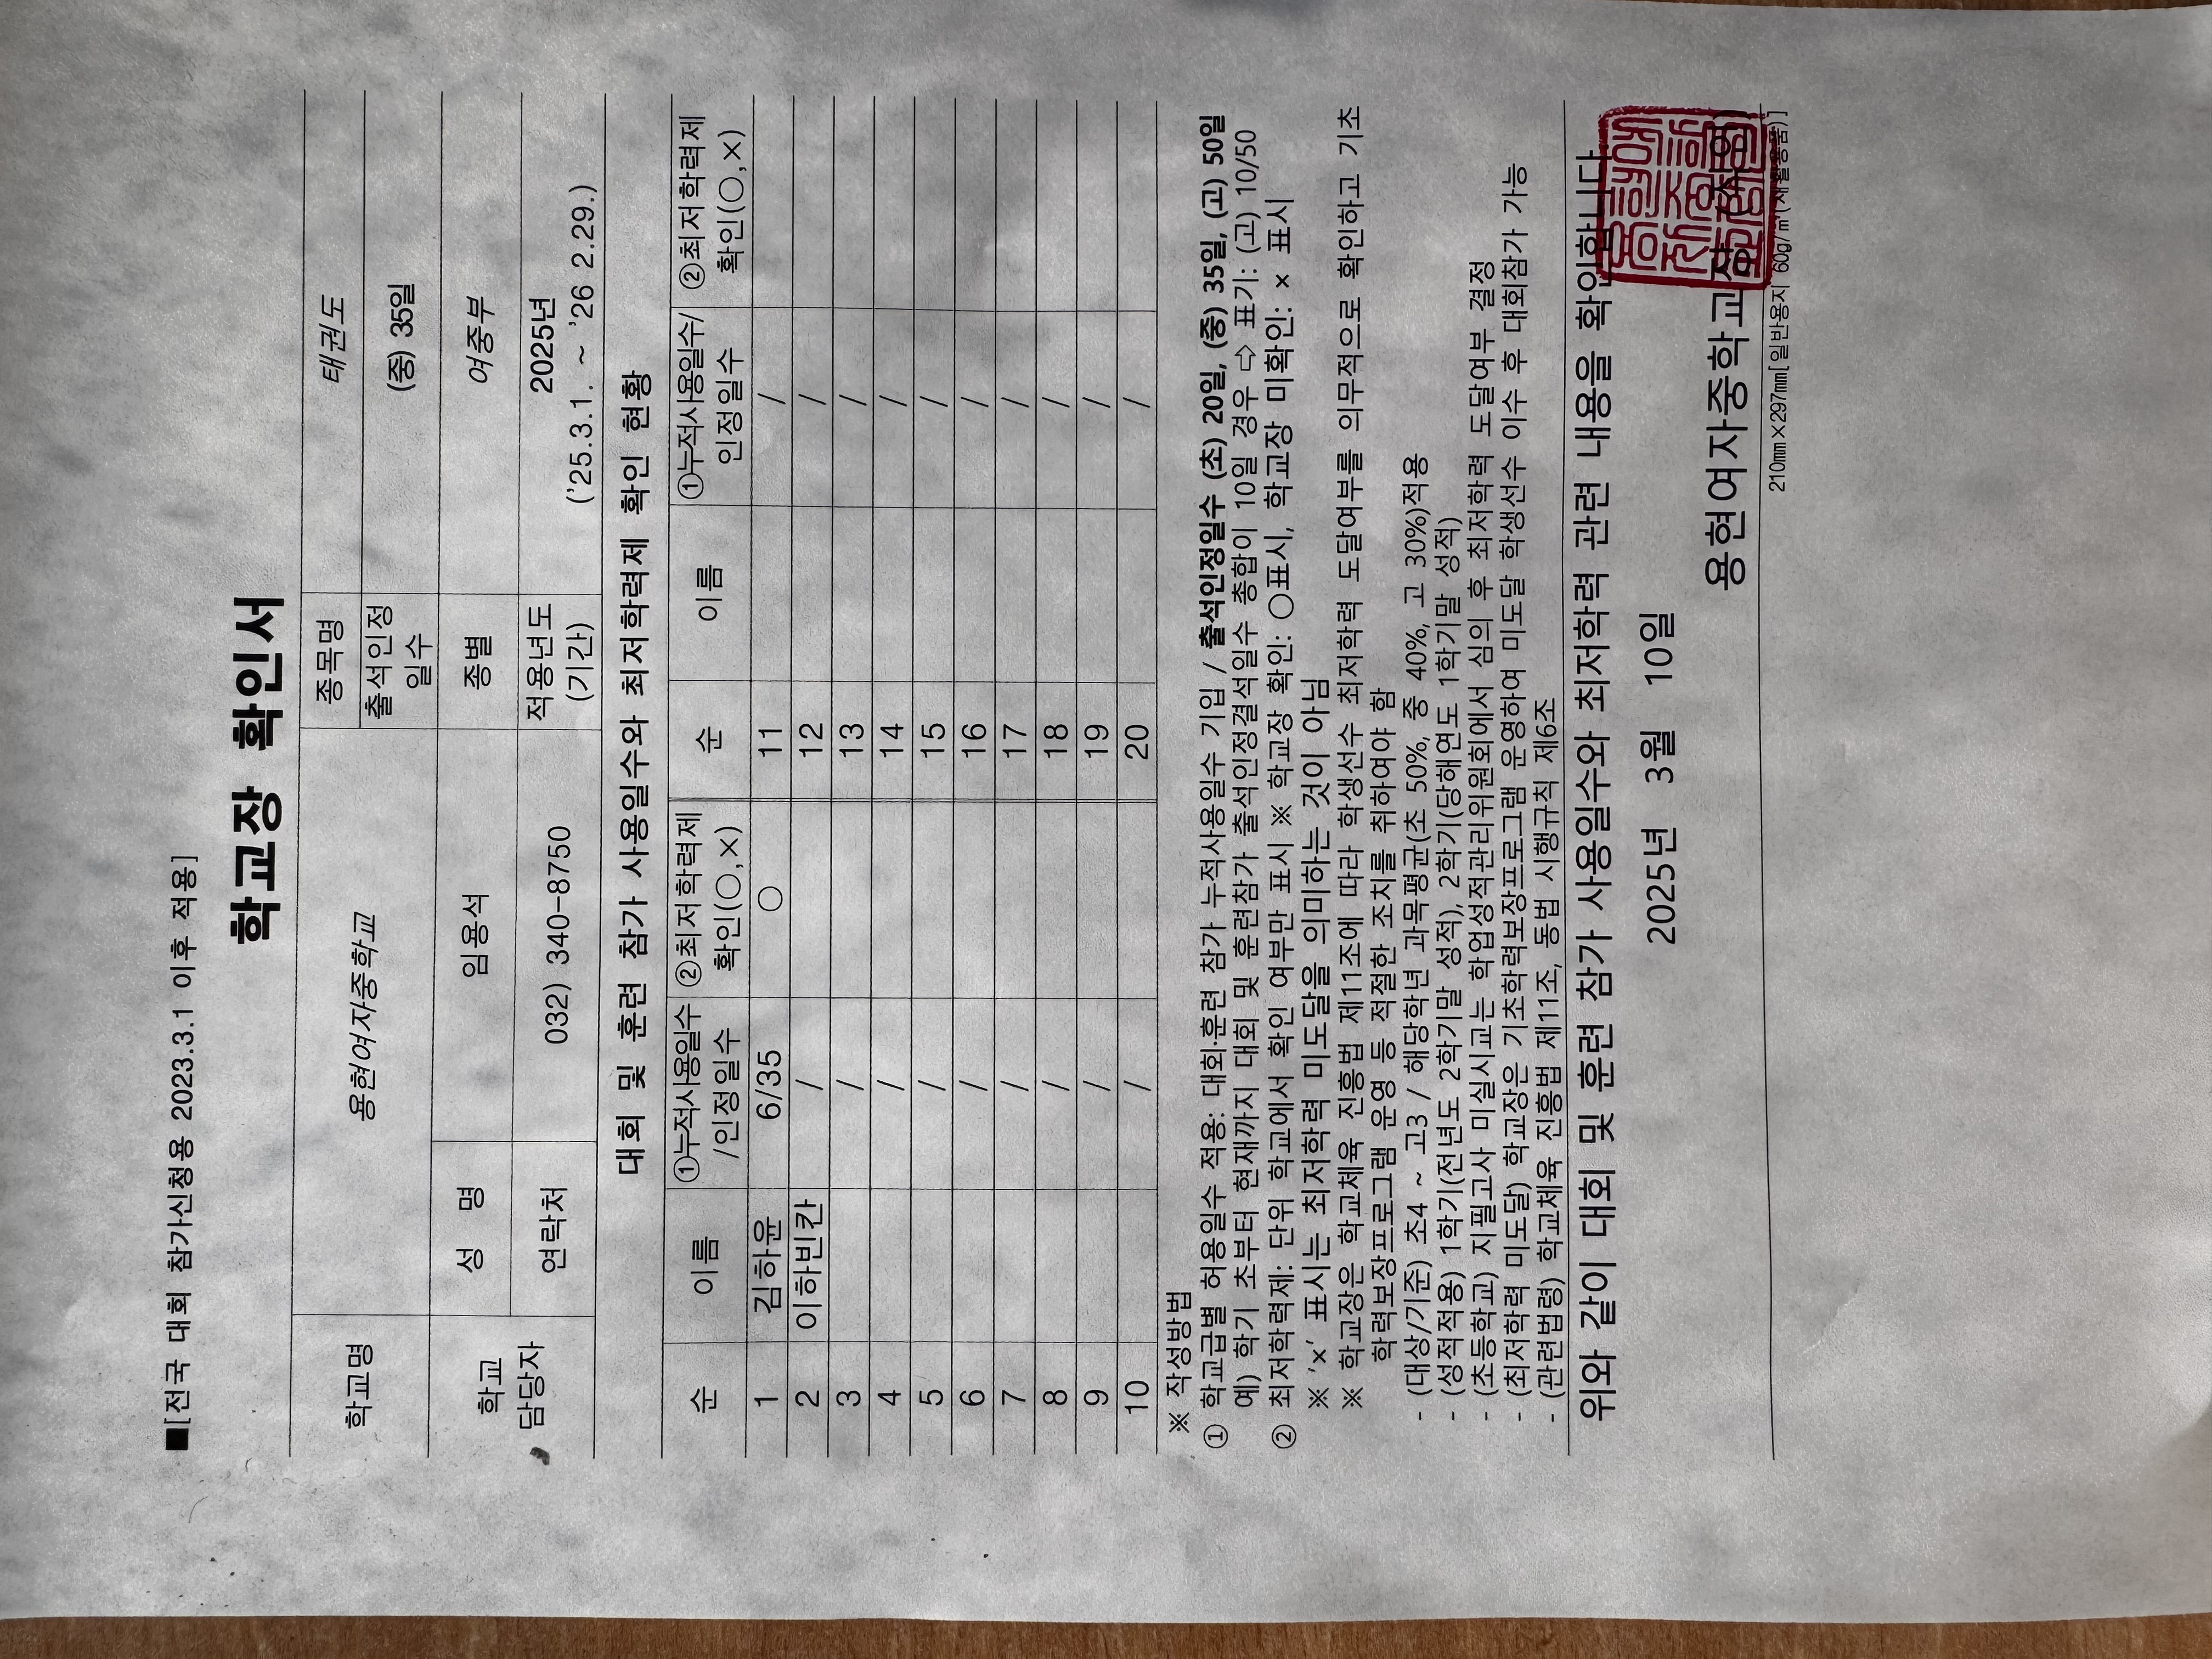 ■[전국 대회 참가신청용 2023.3.1 이후 적용]
학교장 확인서
학교명 용현여자중학교 종목명 태권도
출석인정 일수 (중) 35일
학교 담당자 성 명 임용석 종별 여중부
연락처 032) 340-8750 적용년도 (기간) 2025년 ('25.3.1. ~ '26 2.29.)
대회 및 훈련 참가 사용일수와 최저학력제 확인 현황
순 이름 ①누적사용일수 /인정일수 ②최저학력제 확인(○,×) 순 이름 ①누적사용일수/ 인정일수 ②최저학력제 확인(○,×)
1 김하윤 6/35 ○ 11 /
2 이하빈칸 / 12 /
3 / 13 /
4 / 14 /
5 / 15 /
6 / 16 /
7 / 17 /
8 / 18 /
9 / 19 /
10 / 20 /
※ 작성방법
① 학교급별 허용일수 적용: 대회·훈련 참가 누적사용일수 기입 / 출석인정일수 (초) 20일, (중) 35일, (고) 50일
예) 학기 초부터 현재까지 대회 및 훈련참가 출석인정결석일수 총합이 10일 경우 ⇨ 표기: (고) 10/50
② 최저학력제: 단위 학교에서 확인 여부만 표시 ※ 학교장 확인: ○표시, 학교장 미확인: × 표시
※ '×' 표시는 최저학력 미도달을 의미하는 것이 아님
※ 학교장은 학교체육 진흥법 제11조에 따라 학생선수 최저학력 도달여부를 의무적으로 확인하고 기초
학력보장프로그램 운영 등 적절한 조치를 취하여야 함
- (대상/기준) 초4 ~ 고3 / 해당학년 과목평균(초 50%, 중 40%, 고 30%)적용
- (성적적용) 1학기(전년도 2학기말 성적), 2학기(당해연도 1학기말 성적)
- (초등학교) 지필고사 미실시교는 학업성적관리위원회에서 심의 후 최저학력 도달여부 결정
- (최저학력 미도달) 학교장은 기초학력보장프로그램 운영하여 미도달 학생선수 이수 후 대회참가 가능
- (관련법령) 학교체육 진흥법 제11조, 동법 시행규칙 제6조
위와 같이 대회 및 훈련 참가 사용일수와 최저학력 관련 내용을 확인합니다
2025년 3월 10일
용현여자중학교장 (직인)
210㎜×297㎜[일반용지 60g/㎡(재활용품)]